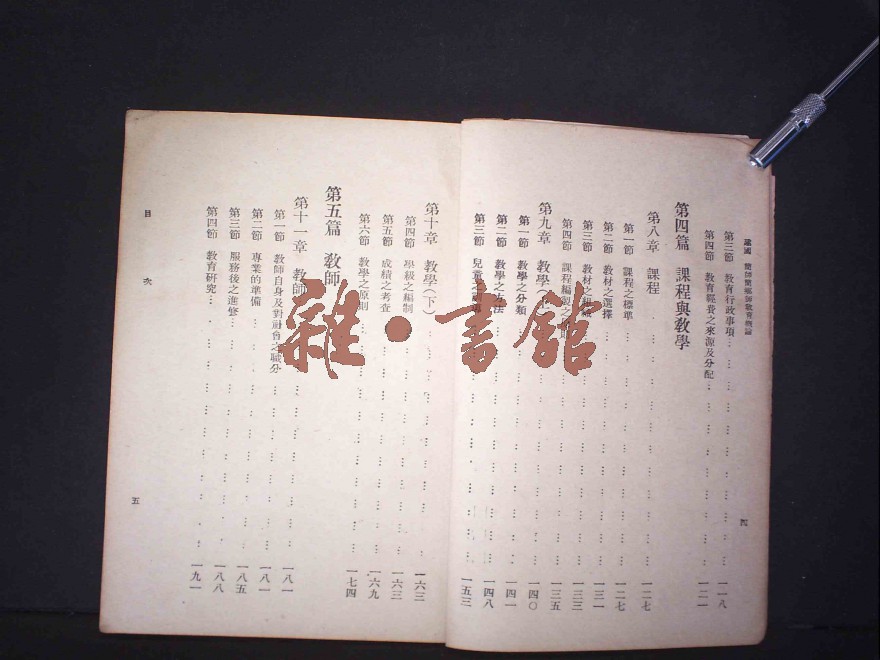 第三節 教育行政事項 一一八
第四節 教育經費之來源及分配 一二一
第四篇 課程與教學
第八章 課程 一二七
第一節 課程之標準 一二七
第二節 教材之選擇 一三一
第三節 教材之組織 一三三
第四節 課程編製之 一三五
第九章 教學 一四〇
第一節 教學之分類 一四一
第二節 教學之方法 一四八
第三節 兒童之 一五三
四
第十章 教學(下) 一六三
第四節 學級之編制 一六三
第五節 成績之考查 一六九
第六節 教學之原則 一七四
第五篇 教師
第十一章 教師 一八一
第一節 教師自身及對社會之職分 一八一
第二節 專業的準備 一八五
第三節 服務後之進修 一八八
第四節 教育研究 一九一
目次
五
雜·書館